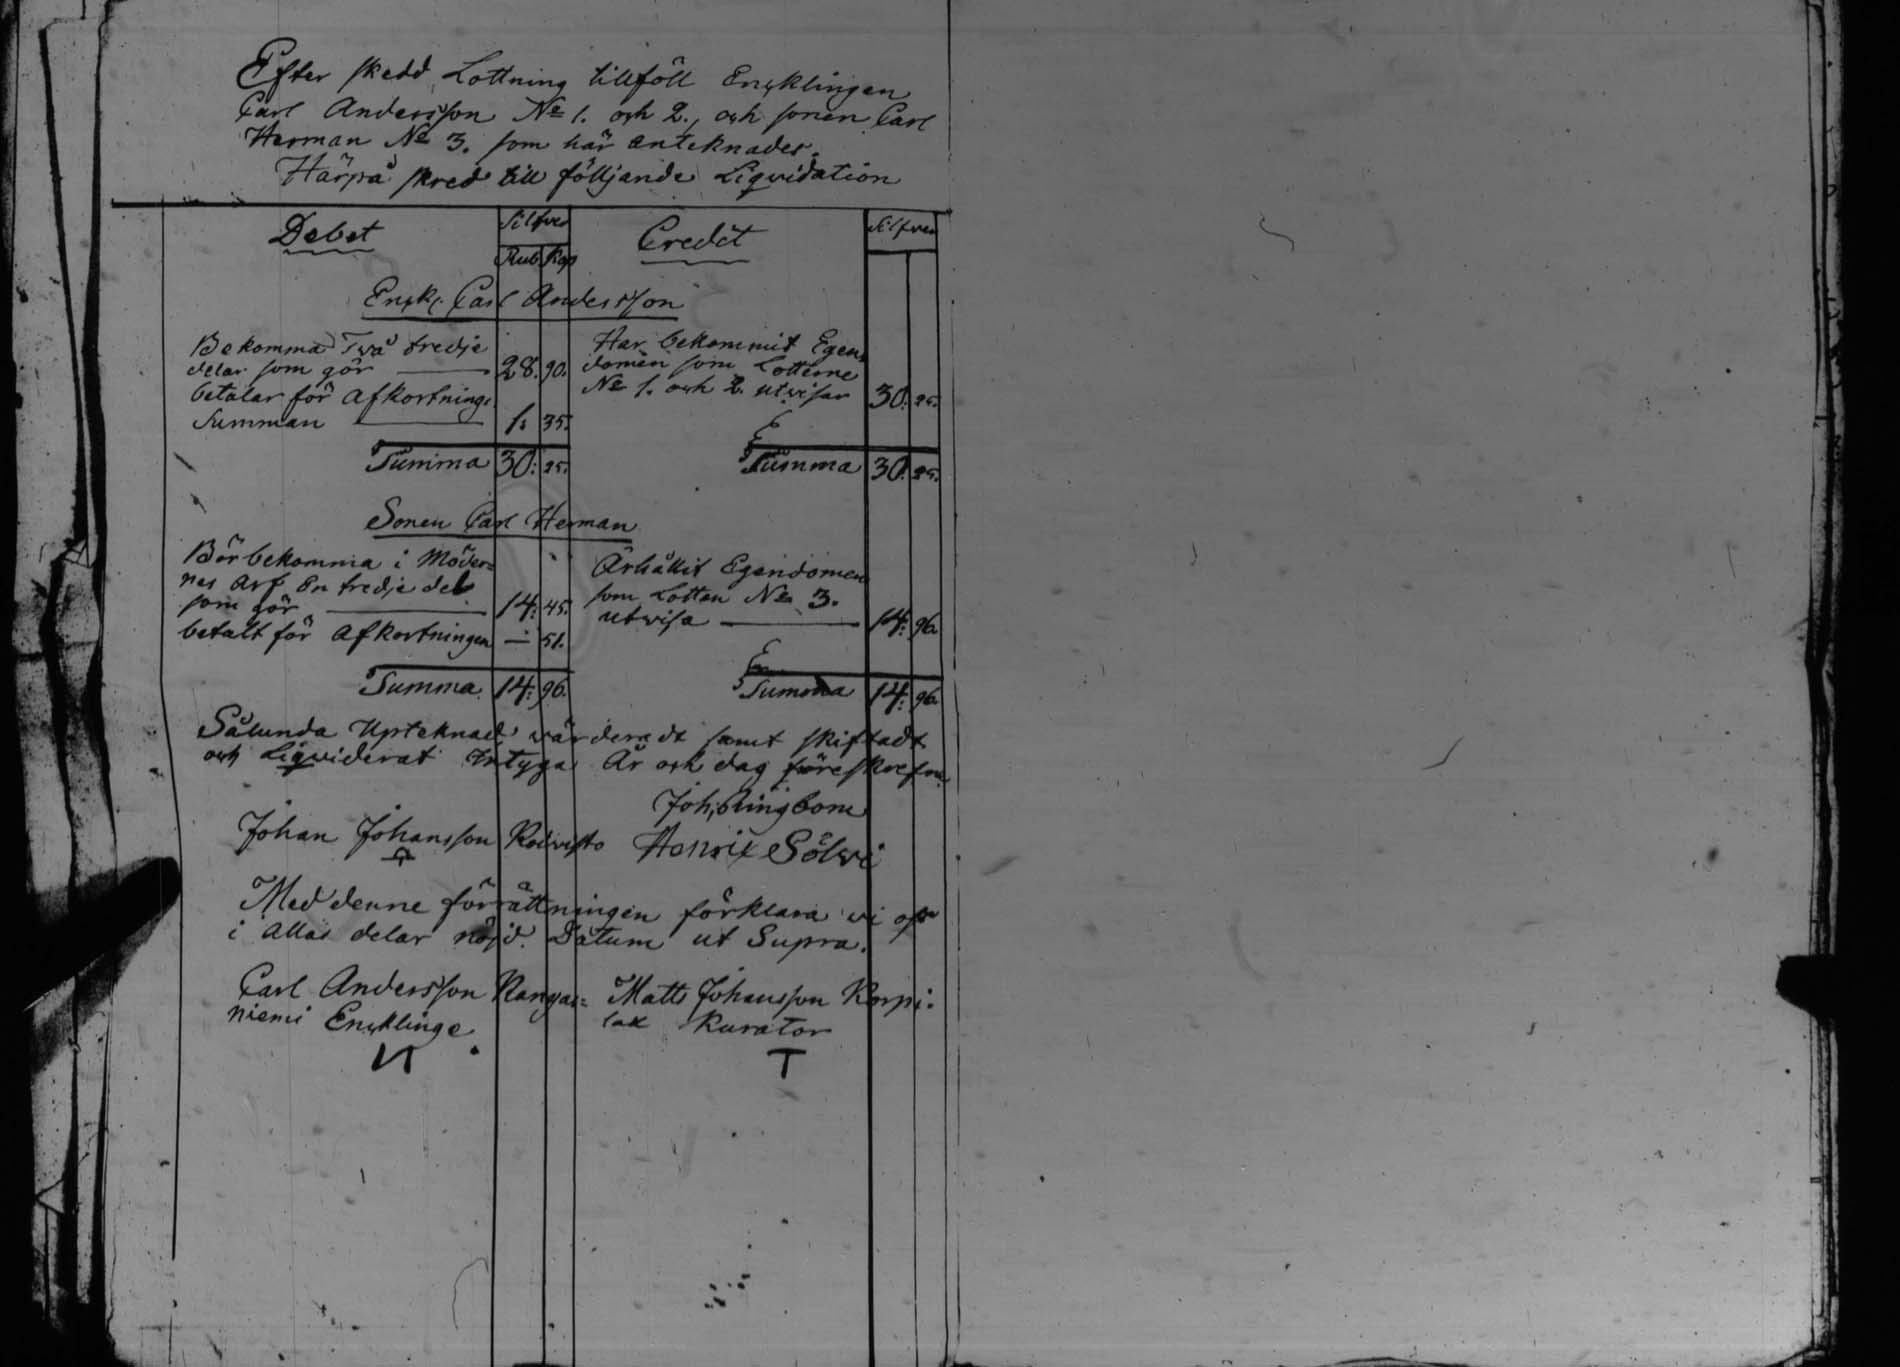 Efter skedd Lottning tillföll Enkklingen
Carl Andersson No 1. och 2., och sonen Carl
Herman No 3. som här anteknades.
Härpå skred till följjande Liqvidation
Debet Silfver Credit Silfver
Rub Kop
Enkl. Carl Andersson
Bekomma Två tredje
delar som gör 28. 90.
betalar för Afkortnings
Summan 1. 35.
Summa 30: 25.
Har bekommit Egen
domen som Lotterne
No 1. och 2. utvisar 30: 25.
Summa 30: 25.
Sonen Carl Herman
Bör bekomma i Möder=
nes Arf En tredje del
som gör 14: 45.
betalt för Afkortningen — 51.
Summa 14: 96.
Ärhållit Egendomen
som Lotten No 3.
utvisa 14: 96.
Summa 14: 96.
Sålunda Upteknad värderadt samt skiftadt
och Liqviderat Intyga År och dag föreskrefne
Joh: Ringbom
Johan Johansson Koivisto Henrik Sölvi
Med denne förrättningen förklara vi oss
i allas delar nöjd. Datum ut Supra.
Carl Andersson Kangas= Matts Johansson Korpi=
niemi Enkklinge lax Kurator